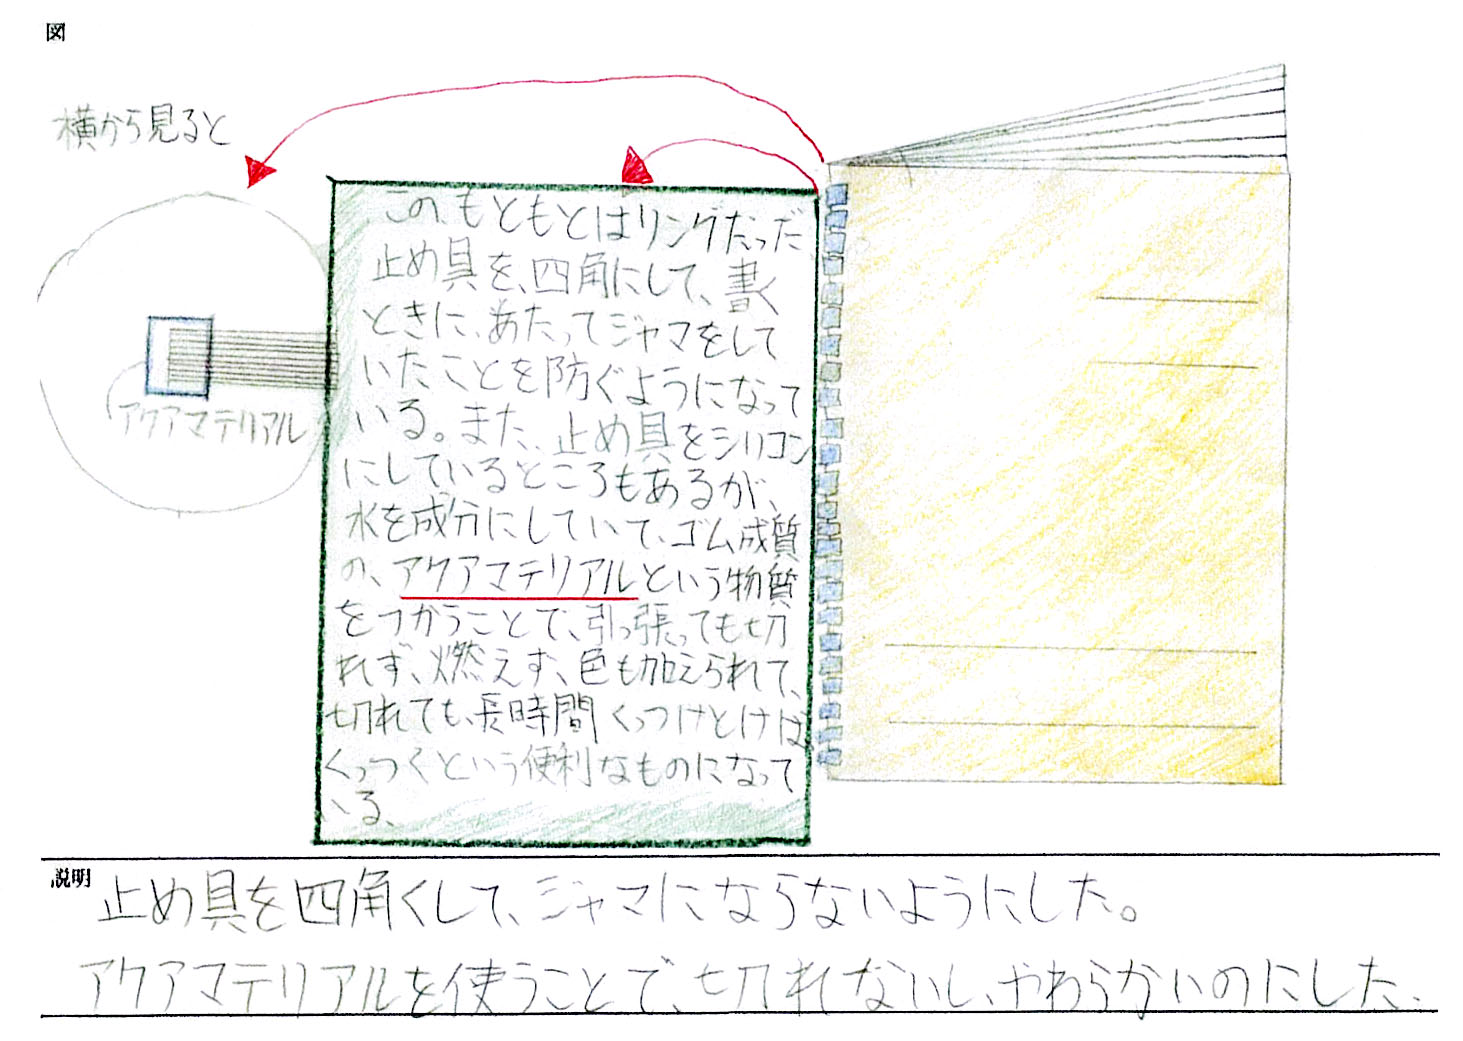 図
横から見ると
アクアマテリアル
この、もともとはリングだった
止め具を、四角にして、書く
ときに、あたってジャマをして
いたことを防ぐようになって
いる。また、止め具をシリコン
にしているところもあるが、
水を成分にしていて、ゴム成質
の、アクアマテリアルという物質
をつかうことで、引っ張っても切
れず、燃えず、色も加えられて、
切れても、長時間くっつけとけば
くっつくという便利なものになって
いる、
説明
止め具を四角くして、ジャマにならないようにした。
アクアマテリアルを使うことで、切れないし、やわらかいのにした、